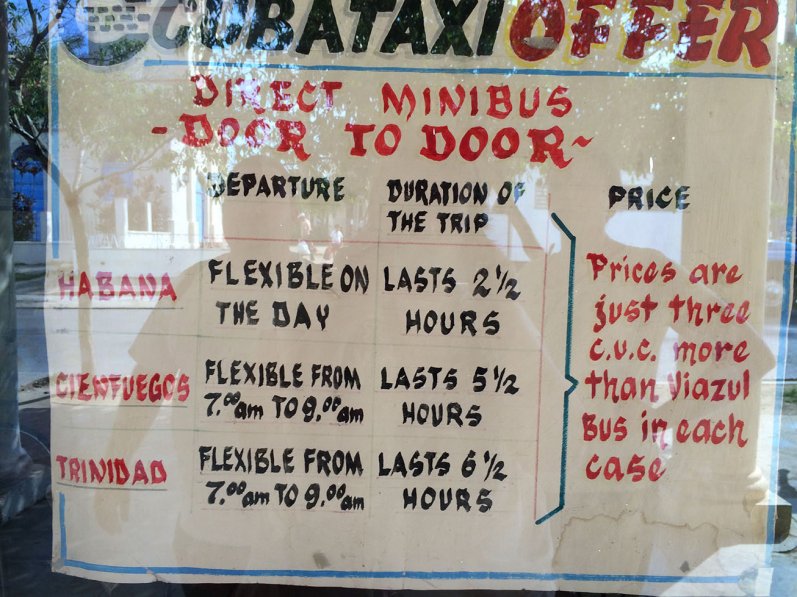 CUBATAXI OFFER
DIRECT MINIBUS
-DOOR TO DOOR~
DEPARTURE DURATION OF THE TRIP PRICE
HABANA FLEXIBLE ON THE DAY LASTS 2 1/2 HOURS
CIENFUEGOS FLEXIBLE FROM 7.00am TO 9.00am LASTS 5 1/2 HOURS
TRINIDAD FLEXIBLE FROM 7.00am TO 9.00am LASTS 6 1/2 HOURS
Prices are
just three
c.u.c. more
than Viazul
Bus in each
case